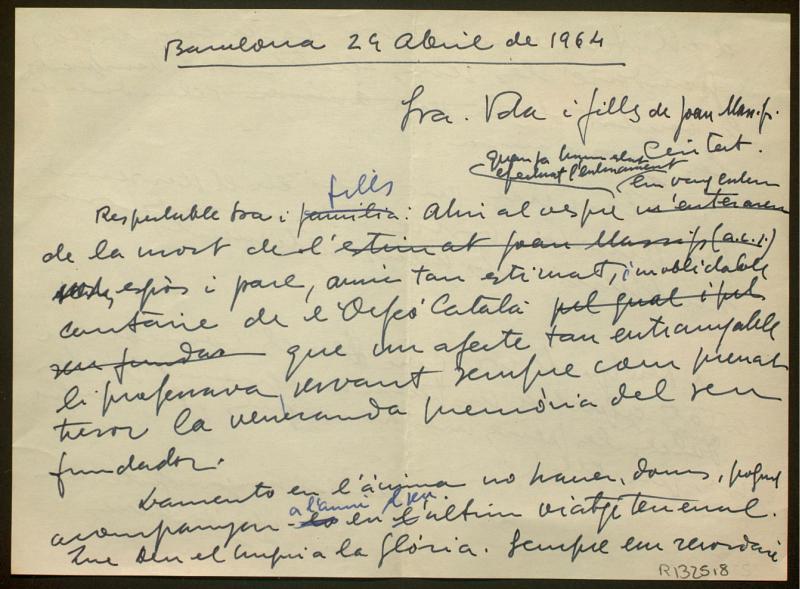 Barcelona 29 Abril de 1964
Sra. Vda i fills de Joan Massip.
Ciutat.
quan ja havien
efectuat l'enterrament
fills Em vaig enterar
Respectable Sra i família: Ahir al vespre m'enteraren
de la mort de l'estimat Joan Massip (a.c.s.)
espòs i pare, amic tan estimat, inoblidable
cantaire de l'Orfeó Català pel qual i pel
seu fundador que un afecte tan entranyable
li professava, servant sempre com preuat
tresor la veneranda memòria del seu
fundador.
Lamento en l'ànima no haver, doncs, pogut
a l'amic seu
acompanyar-lo en l'últim viatge terrenal.
Que Deu el tingui a la Glòria. Sempre em recordaré
R132518